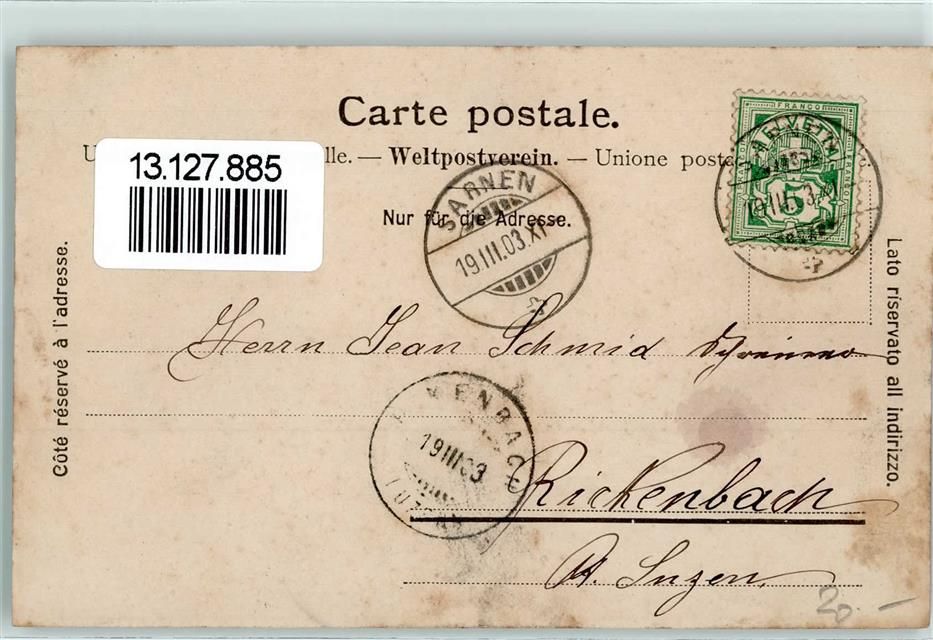 Carte postale.
lle. — Weltpostverein. — Unione posta
13.127.885
FRANCO
HELVETIA
Nur für die Adresse.
SARNEN
19.III.03.XI
5
Côté réservé à l'adresse.
Lato riservato all indirizzo.
Herrn Jean Schmid Schreiner
19 III 03
LUZERN
Rickenbach
Kt. Luzern
20.-